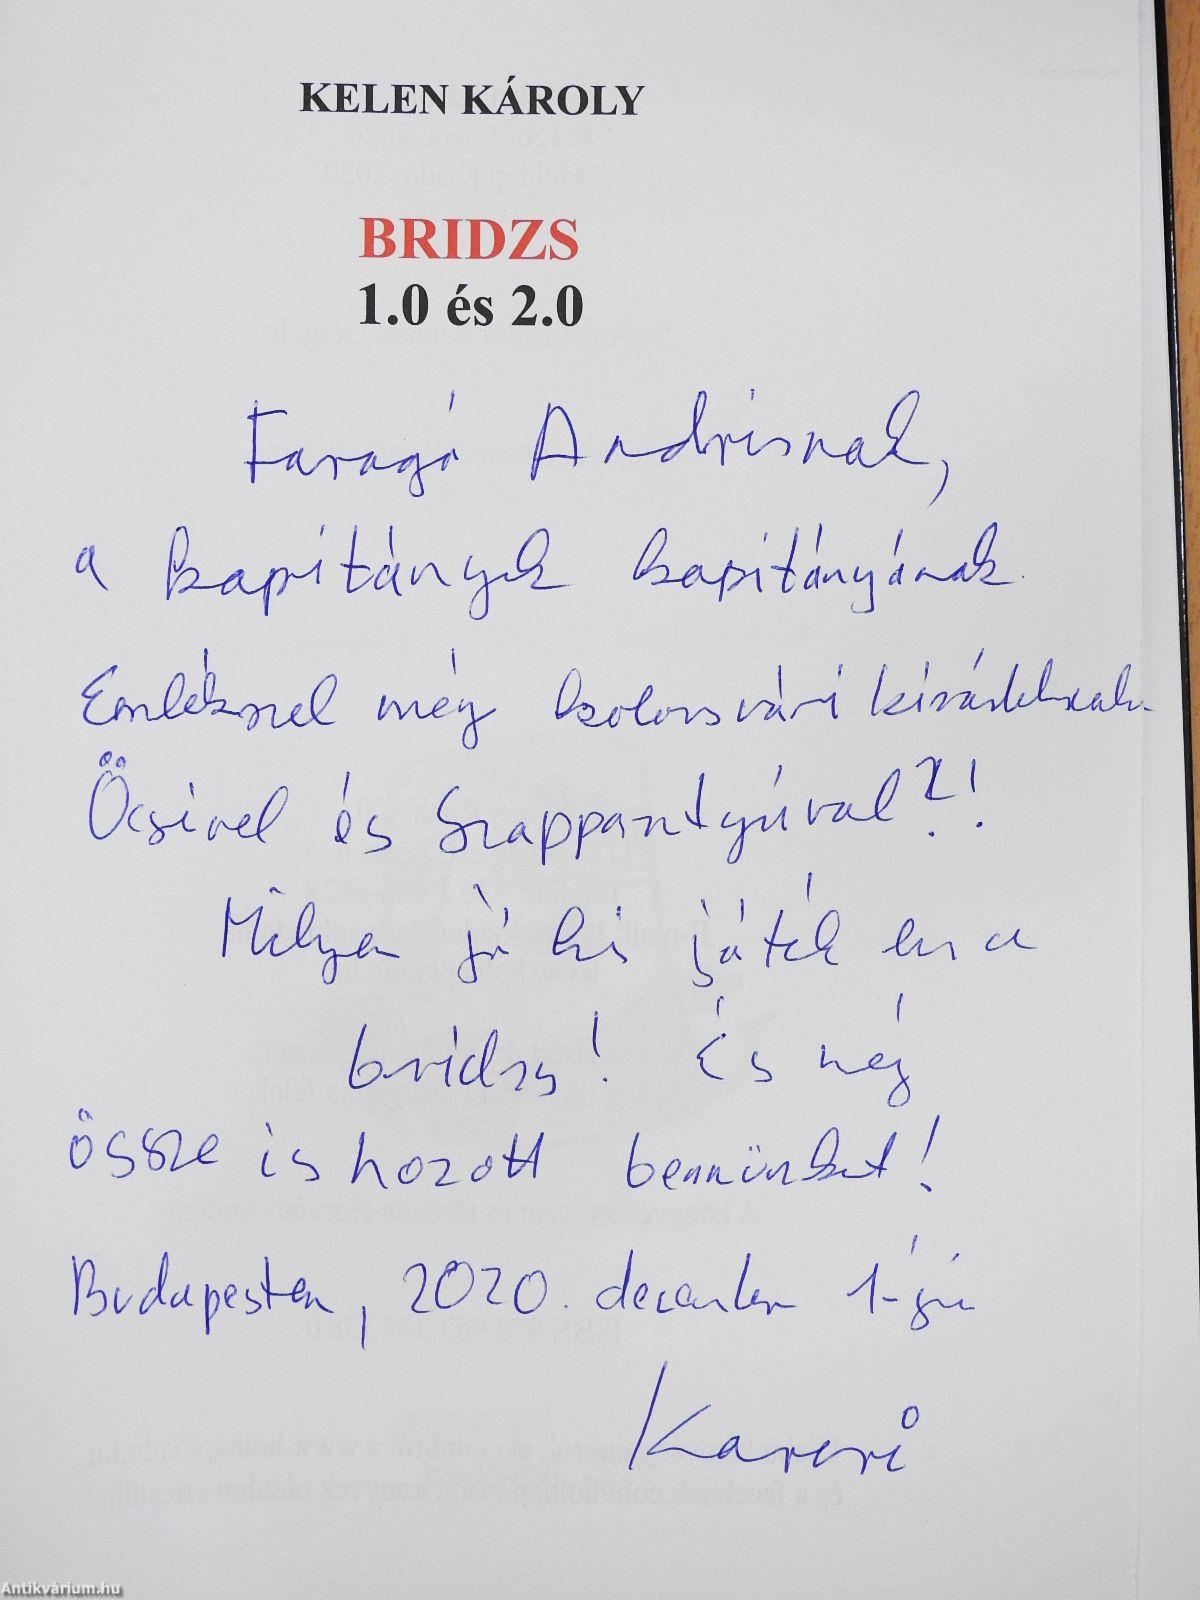 KELEN KÁROLY
BRIDZS
1.0 és 2.0
Faragó Andrisnak,
a kapitányok kapitányának.
Emlékszel még kolozsvári
Öcsivel és Szappantyúval?!
Milyen jó kis játék ez a
bridzs! És még
össze is hozott bennünket!
Budapesten, 2020. december 1-jén
Karcsi
Antikvárium.hu